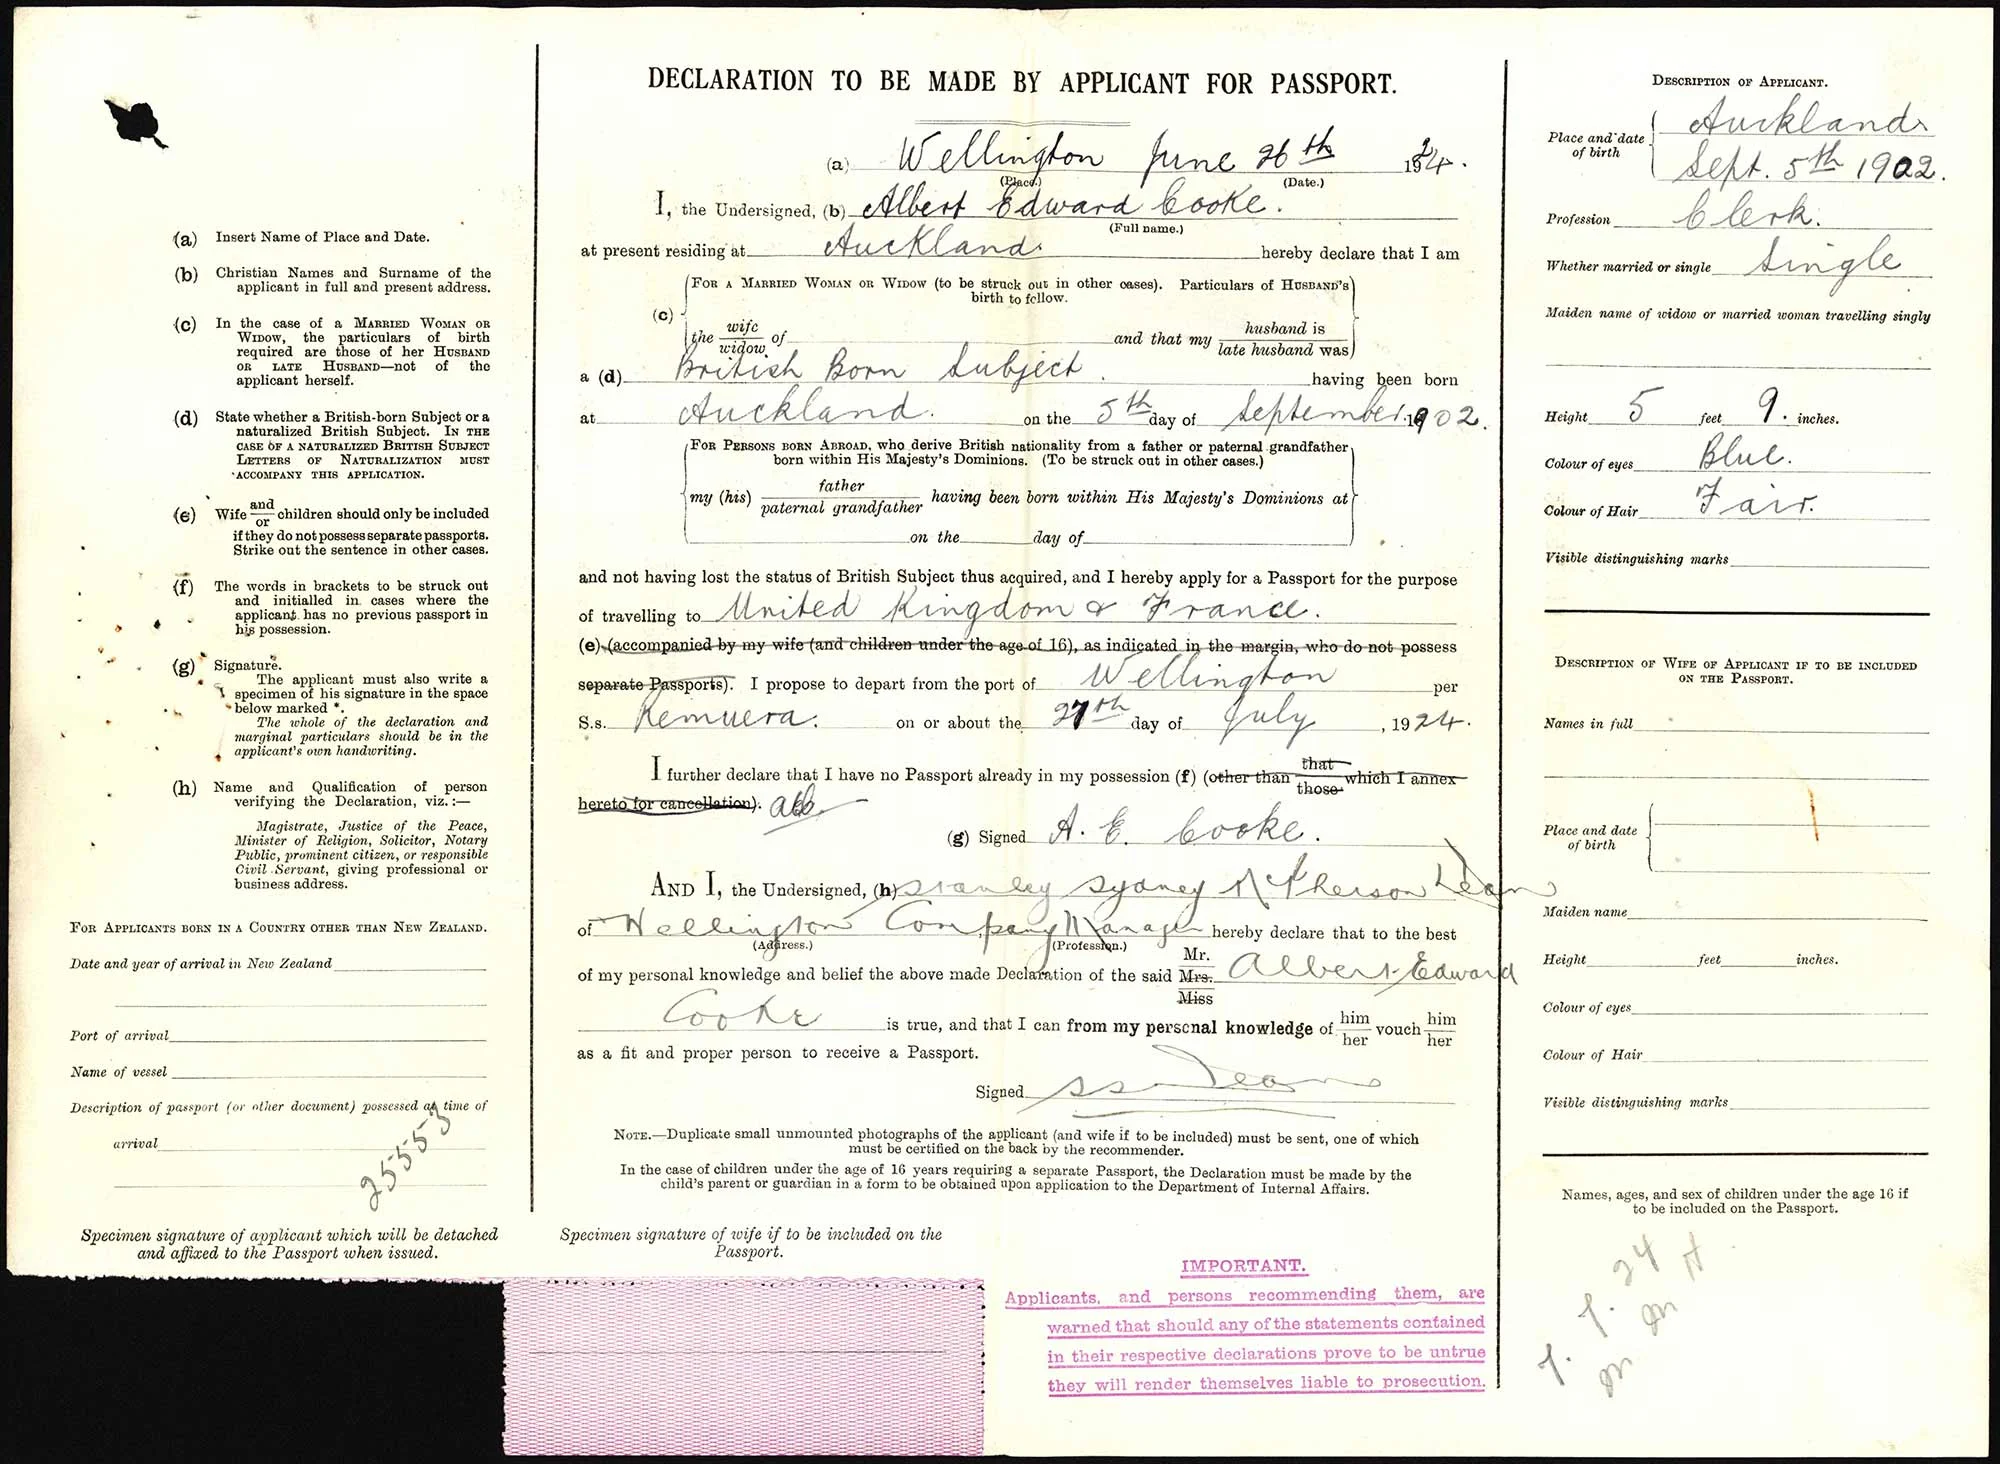 (a) Insert Name of Place and Date.
(b) Christian Names and Surname of the
applicant in full and present address.
(c) In the case of a MARRIED WOMAN OR
WIDOW, the particulars of birth
required are those of her HUSBAND
OR LATE HUSBAND—not of the
applicant herself.
(d) State whether a British-born Subject or a
naturalized British Subject. IN THE
CASE OF A NATURALIZED BRITISH SUBJECT
LETTERS OF NATURALIZATION MUST
ACCOMPANY THIS APPLICATION.
(e) Wife and/or children should only be included
if they do not possess separate passports.
Strike out the sentence in other cases.
(f) The words in brackets to be struck out
and initialled in cases where the
applicant has no previous passport in
his possession.
(g) Signature.
The applicant must also write a
specimen of his signature in the space
below marked *.
The whole of the declaration and
marginal particulars should be in the
applicant's own handwriting.
(h) Name and Qualification of person
verifying the Declaration, viz.:—
Magistrate, Justice of the Peace,
Minister of Religion, Solicitor, Notary
Public, prominent citizen, or responsible
Civil Servant, giving professional or
business address.
FOR APPLICANTS BORN IN A COUNTRY OTHER THAN NEW ZEALAND.
Date and year of arrival in New Zealand
Port of arrival
Name of vessel
Description of passport (or other document) possessed at time of
arrival
25553
Specimen signature of applicant which will be detached
and affixed to the Passport when issued.
DECLARATION TO BE MADE BY APPLICANT FOR PASSPORT.
(a) Wellington June 26th 1924.
(Place.) (Date.)
I, the Undersigned, (b) Albert Edward Cooke.
(Full name.)
at present residing at Auckland hereby declare that I am
FOR A MARRIED WOMAN OR WIDOW (to be struck out in other cases). Particulars of HUSBAND'S
birth to follow.
(c) the wife/widow of and that my husband is/late husband was
a (d) British Born Subject. having been born
at Auckland. on the 5th day of September. 1902.
FOR PERSONS BORN ABROAD, who derive British nationality from a father or paternal grandfather
born within His Majesty's Dominions. (To be struck out in other cases.)
my (his) father/paternal grandfather having been born within His Majesty's Dominions at
on the day of
and not having lost the status of British Subject thus acquired, and I hereby apply for a Passport for the purpose
of travelling to United Kingdom & France.
(e) (accompanied by my wife (and children under the age of 16), as indicated in the margin, who do not possess
separate Passports). I propose to depart from the port of Wellington per
S.s. Remuera. on or about the 27th day of July, 1924.
I further declare that I have no Passport already in my possession (f) (other than that/those which I annex
hereto for cancellation). AEC
(g) Signed A. E. Cooke.
AND I, the Undersigned, (h) Stanley Sydney McPherson Dean
of Wellington Company Manager hereby declare that to the best
(Address.) (Profession.)
of my personal knowledge and belief the above made Declaration of the said Mr./Mrs./Miss Albert Edward
Cooke is true, and that I can from my personal knowledge of him/her vouch him/her
as a fit and proper person to receive a Passport.
Signed SSM Dean
NOTE.—Duplicate small unmounted photographs of the applicant (and wife if to be included) must be sent, one of which
must be certified on the back by the recommender.
In the case of children under the age of 16 years requiring a separate Passport, the Declaration must be made by the
child's parent or guardian in a form to be obtained upon application to the Department of Internal Affairs.
Specimen signature of wife if to be included on the
Passport.
IMPORTANT.
Applicants, and persons recommending them, are
warned that should any of the statements contained
in their respective declarations prove to be untrue
they will render themselves liable to prosecution.
DESCRIPTION OF APPLICANT.
Place and date of birth Auckland
Sept. 5th 1902.
Profession Clerk.
Whether married or single Single
Maiden name of widow or married woman travelling singly
Height 5 feet 9. inches.
Colour of eyes Blue.
Colour of Hair Fair.
Visible distinguishing marks
DESCRIPTION OF WIFE OF APPLICANT IF TO BE INCLUDED
ON THE PASSPORT.
Names in full
Place and date
of birth
Maiden name
Height feet inches.
Colour of eyes
Colour of Hair
Visible distinguishing marks
Names, ages, and sex of children under the age 16 if
to be included on the Passport.